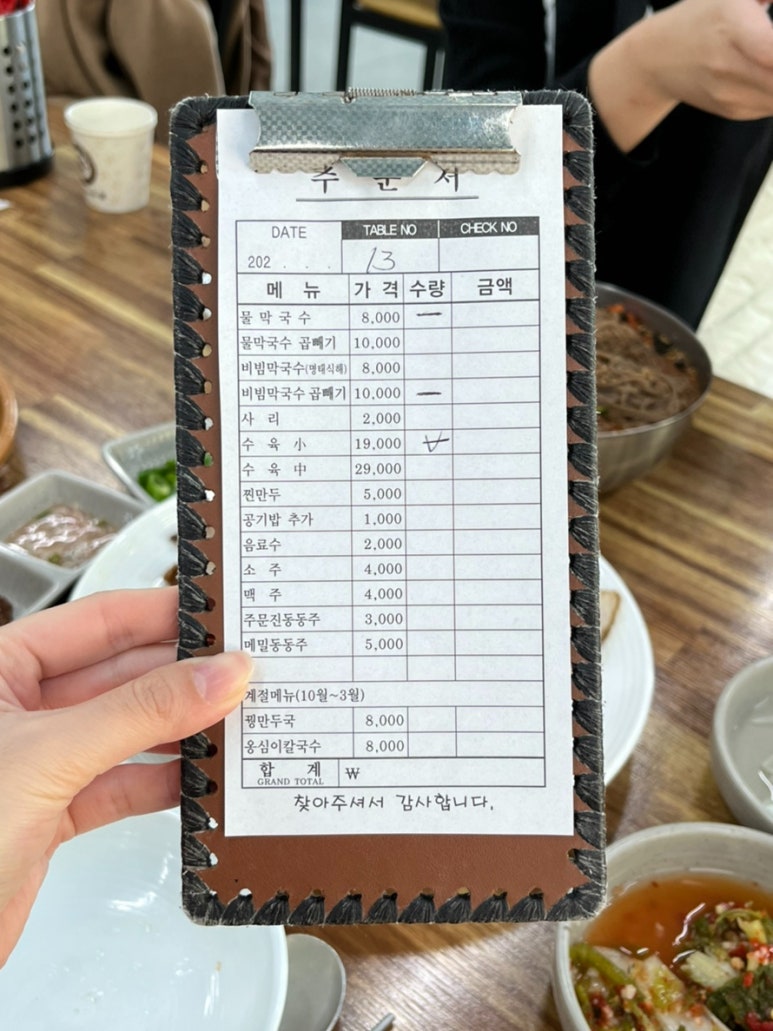 주 문 서
DATE TABLE NO CHECK NO
202 . . . 13
메 뉴 가 격 수량 금액
물 막 국 수 8,000 一
물막국수 곱빼기 10,000
비빔막국수(명태식해) 8,000
비빔막국수 곱빼기 10,000 一
사 리 2,000
수 육 小 19,000
수 육 中 29,000
찐만두 5,000
공기밥 추가 1,000
음료수 2,000
소 주 4,000
맥 주 4,000
주문진동동주 3,000
메밀동동주 5,000
계절메뉴(10월~3월)
꿩만두국 8,000
옹심이칼국수 8,000
합 계 ₩
GRAND TOTAL
찾아주셔서 감사합니다.